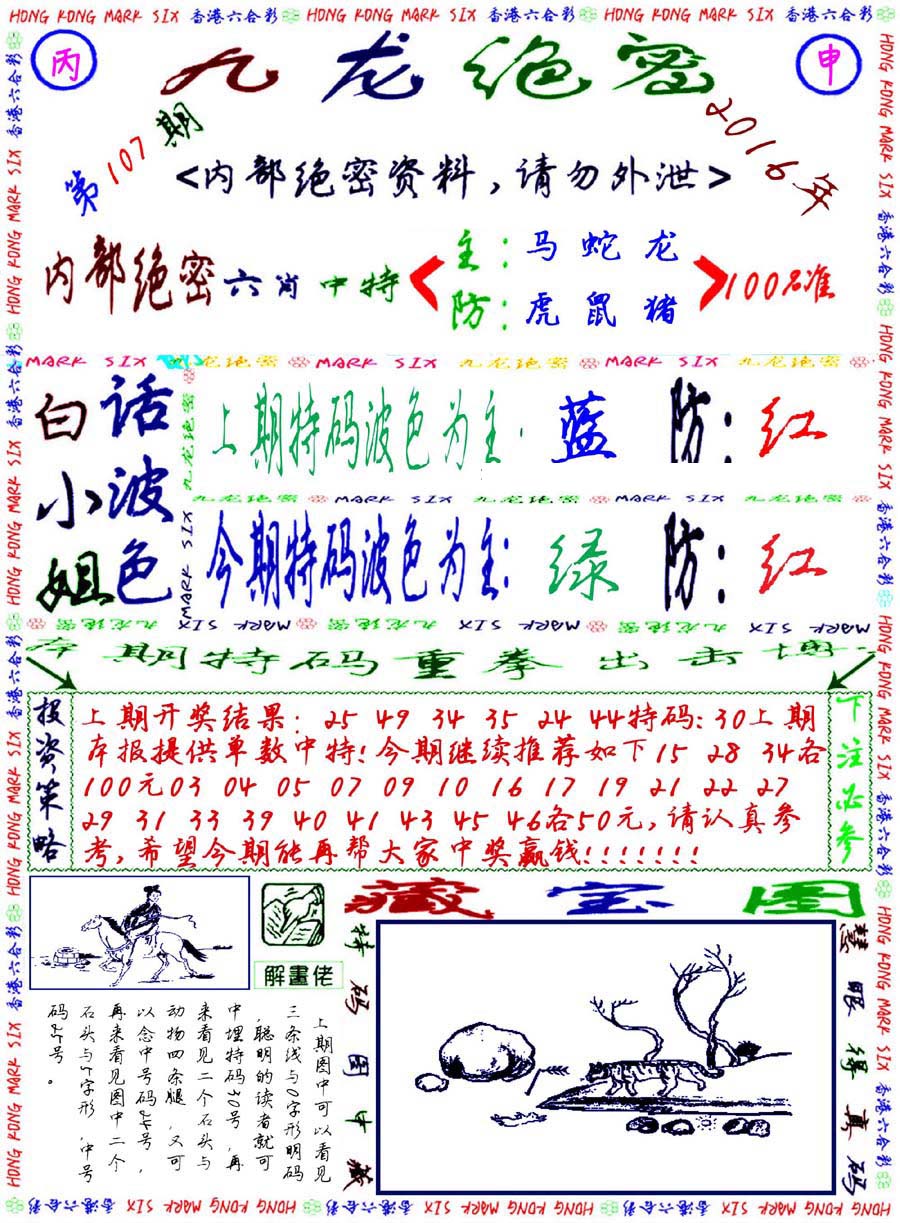 HONG KONG MARK SIX 香港六合彩 HONG KONG MARK SIX 香港六合彩 HONG KONG MARK SIX 香港六合彩
丙
九龙绝密
申
第107期
2016年
<内部绝密资料,请勿外泄>
内部绝密六肖中特
主:马蛇龙
防:虎鼠猪
100%准
MARK SIX 九龙绝密 MARK SIX 九龙绝密 MARK SIX 九龙绝密
白话
小波
姐色
上期特码波色为主·蓝 防:红
九龙绝密 MARK SIX 九龙绝密 MARK SIX 九龙绝密
今期特码波色为主:绿 防:红
九龙绝密 MARK SIX 九龙绝密 MARK SIX 九龙绝密 MARK SIX
本期特码重拳出击博
投资策略
上期开奖结果:25 49 34 35 24 44特码:30上期
本报提供单数中特!今期继续推荐如下15 28 34各
100元03 04 05 07 09 10 16 17 19 21 22 27
29 31 33 39 40 41 43 45 46各50元,请认真参
考,希望今期能再帮大家中奖赢钱!!!!!!!
下注必参
解畫佬
藏宝图
特码图中藏
慧眼得真码
上期图中可以看见
三条线与0字形明码
,聪明的读者就可
中埋特码30号,再
来看见二个石头与
动物四条腿,又可
以念中号码24号,
再来看见图中二个
石头与5字形,中号
码25号。
HONG KONG MARK SIX 香港六合彩 HONG KONG MARK SIX 香港六合彩 HONG KONG MARK SIX 香港六合彩